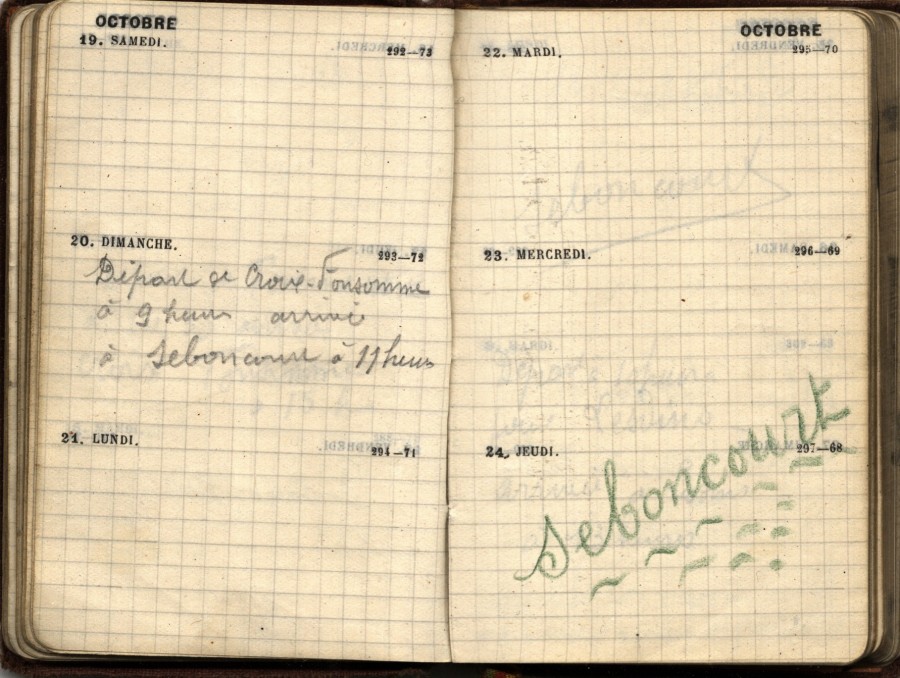 OCTOBRE
19. SAMEDI.
292—73
20. DIMANCHE.
293—72
Départ de Croix-Fonsomme
à 9 heures arrivé
à Seboncourt à 11 heures
21. LUNDI.
294—71
OCTOBRE
22. MARDI.
295—70
Seboncourt
23. MERCREDI.
296—69
24. JEUDI.
297—68
Seboncourt